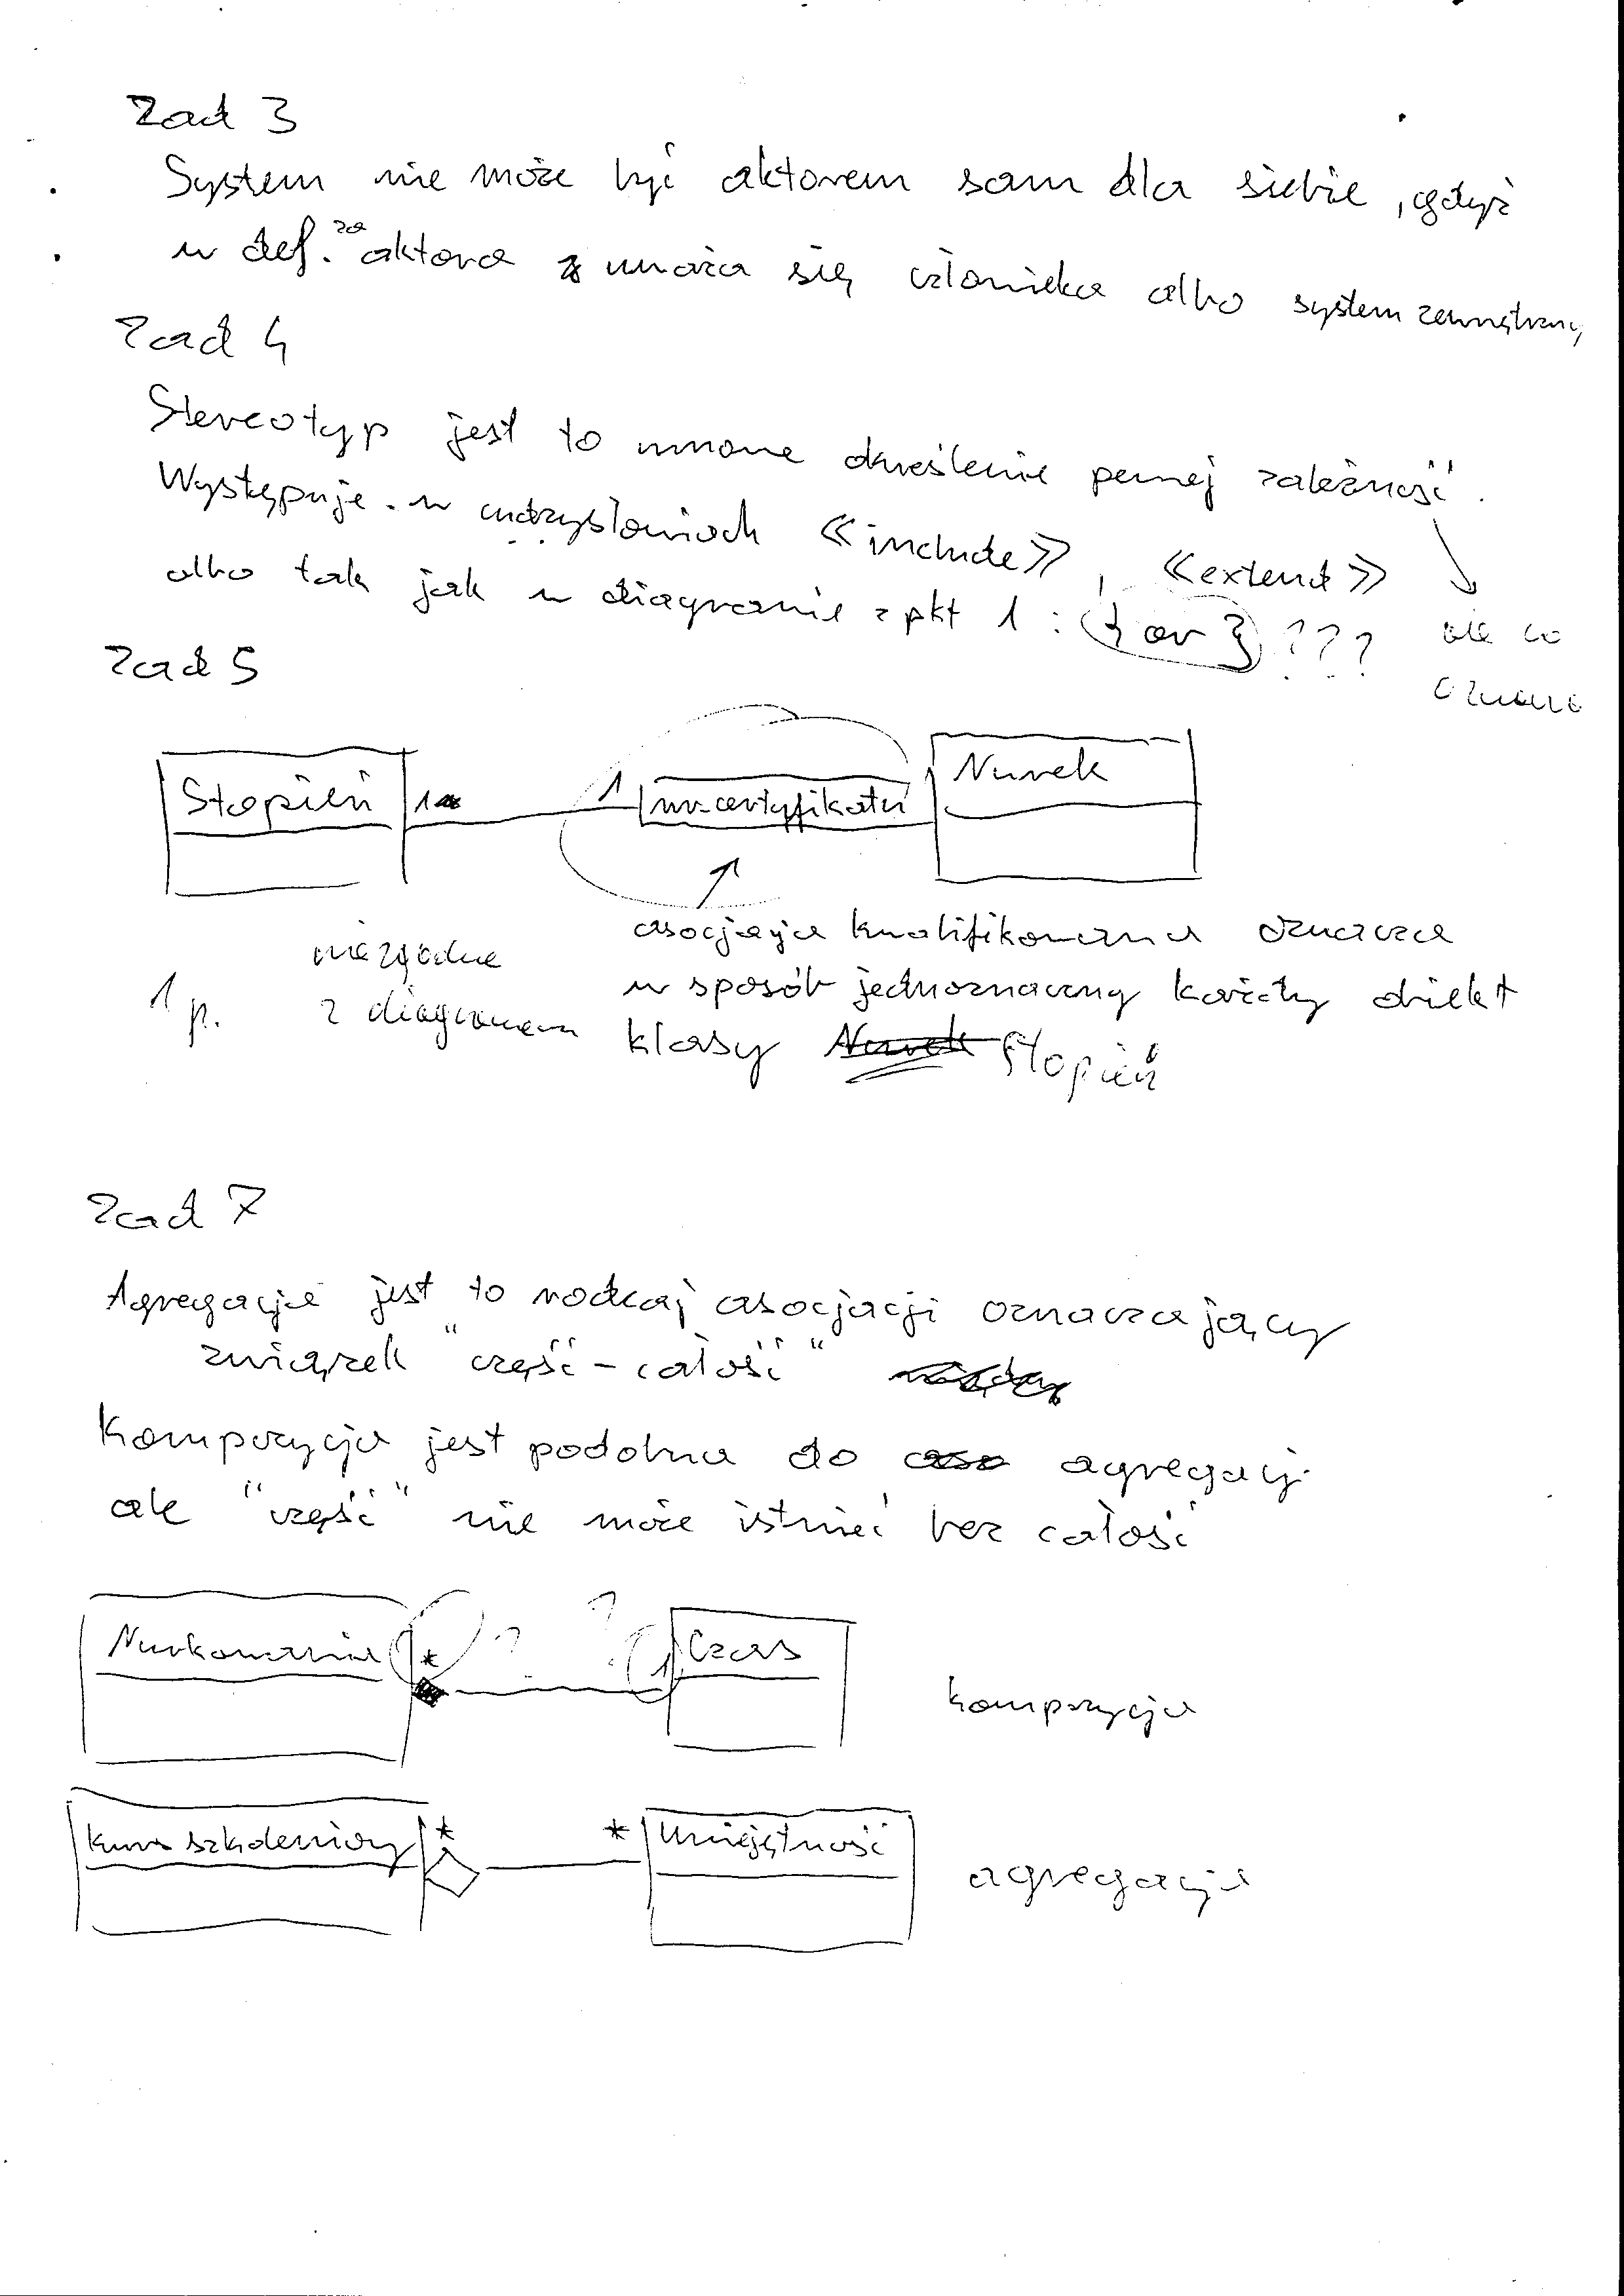 Zad 3
System nie może być aktorem sam dla siebie, gdyż
w def. za aktora uważa się człowieka albo system zewnętrzny
Zad 4
Stereotyp jest to umowne określenie pewnej zależność.
Występuje w «include», «extend»
albo tak jak w diagramie z pkt 1 : {or} ???
ale co
oznacza
Zad 5
Stopień 1 1 nr certyfikatu Nurek
asocjacja kwalifikowana oznacza
w sposób jednoznaczny każdy obiekt
klasy Nurek Stopień
niezgodne
z diagramem
1 p.
Zad 7
Agregacja jest to rodzaj asocjacji oznaczający
związek "część - całość"
Kompozycja jest podobna do aso agregacji
ale "część" nie może istnieć bez całość
Nurkowanie * ? ? 1 Czas
kompozycja
kurs szkoleniowy * * Umiejętność
agregacja